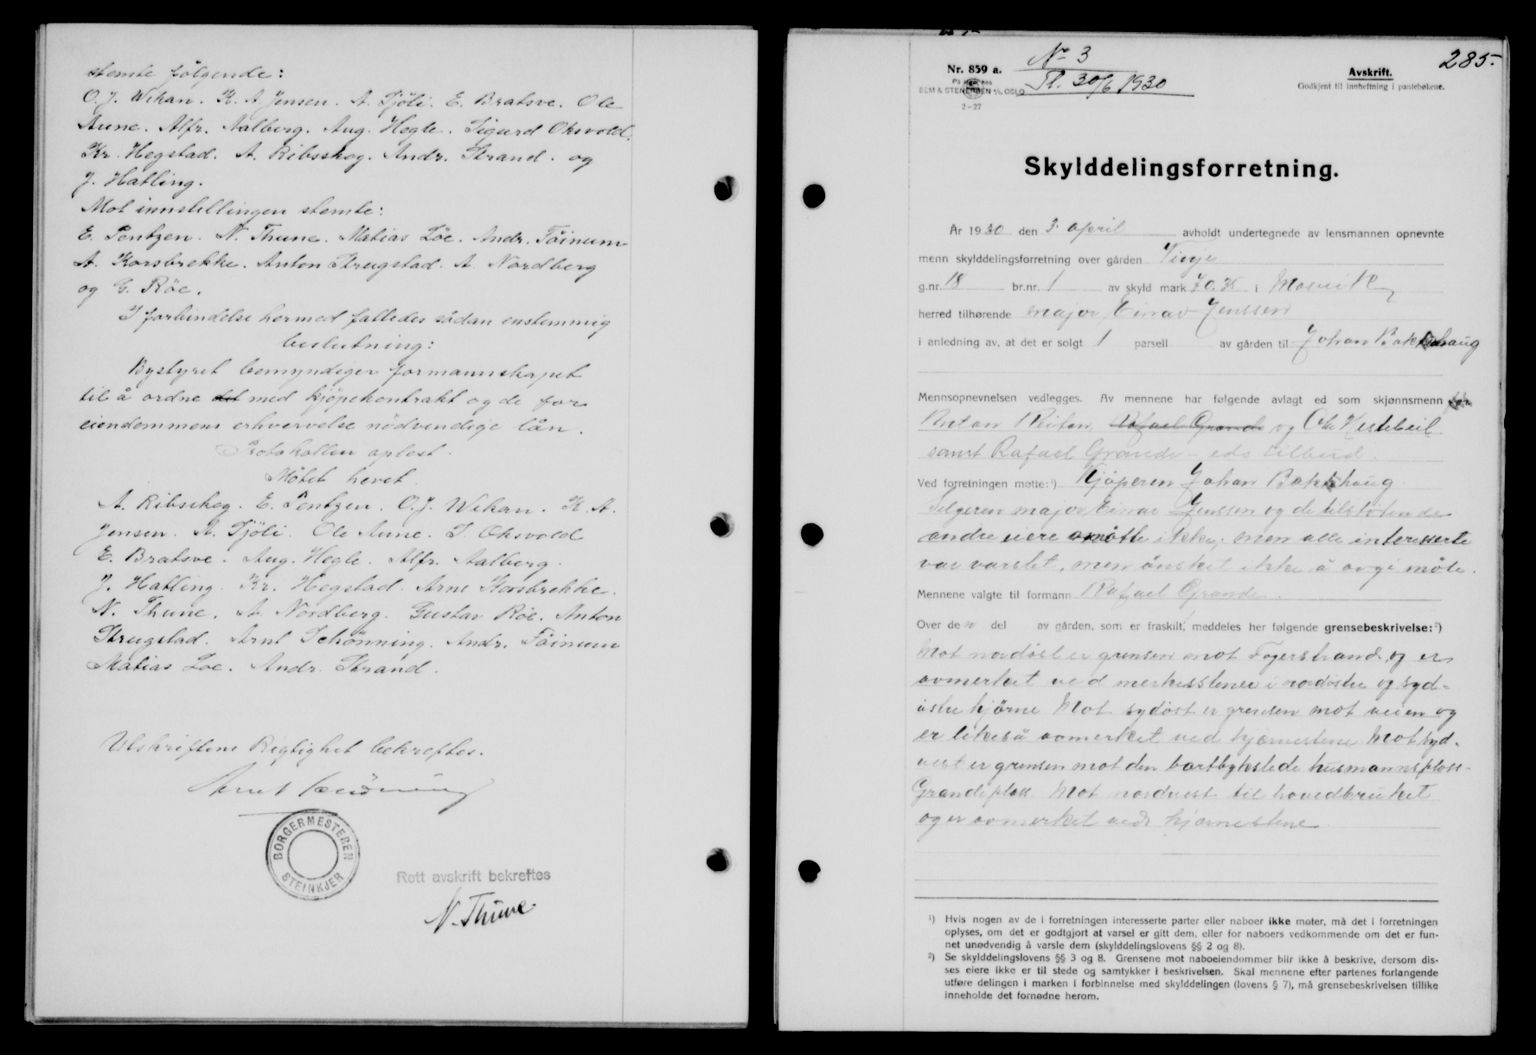 stemte følgende:
O. J. Wekan. K. A. Jensen. A. Tjöli. E. Bratsve. Ole
Aune. Alfr. Aalberg. Aug. Hegle. Sigurd Oksvold.
Kr. Hegstad. A. Ribsskog. Andr. Strand. og
J. Hatling.
Mot innstillingen stemte:
E. Pentzen. N. Thune. Matias Löe. Andr. Föinum
A. Korsbrekke. Anton Strugstad. A. Nordberg
og G. Röe.
I forbindelse hermed falledes sådan enstemmig
beslutning:
Bystyret bemyndiger formannskapet
til å ordne det med kjöpekontrakt og de for
eiendommens erhvervelse nödvendige lån.
Protokollen oplest.
Mötet hevet.
A. Ribsskog. E. Pentzen. O. J. Wekan. K. A.
Jensen. A. Tjöli. Ole Aune. S. Oksvold
E. Bratsve. Aug. Hegle. Alfr. Aalberg.
J. Hatling. Kr. Hegstad. Arne Korsbrekke.
N. Thune. A. Nordberg. Gustav Röe. Anton
Strugstad. Arnt Schönning. Andr. Föinum
Matias Loe. Andr. Strand.
Utskriftens Rigtighet bekreftes.
Arnt Schönning
BORGERMESTEREN
STEINKJER
Rett avskrift bekreftes
N. Thune
285.
Nr. 859 a. No 3
Tl. 30/6 1930
SEM & STENERSEN A/S, OSLO
2-27
Avskrift.
Godkjent til innheftning i pantebøkene.
Skylddelingsforretning.
År 1930 den 3. april avholdt undertegnede av lensmannen opnevnte
menn skylddelingsforretning over gården
g.nr. 18 br.nr. 1 av skyld mark i Mosvik
herred tilhørende major Einar Jenssen
i anledning av, at det er solgt 1 parsell av gården til Johan Bakkhaug
Mennsopnevnelsen vedlegges. Av mennene har følgende avlagt ed som skjønnsmenn før
Anton Reitan, Rafael Grande og Ole
samt Rafael Grande - eds tilbud.
Ved forretningen møtte:¹) Kjöperen Johan Bakkhaug.
Selgeren major Einar Jenssen og de tilstötende
andre eiere mötte ikke, men alle interesserte
var varslet, men önsket ikke å avgi möte.
Mennene valgte til formann Rafael Grande.
Over den del av gården, som er fraskilt, meddeles her følgende grensebeskrivelse:²)
Mot nordöst er grensen mot Fagerstrand og er
avmerket ved merkesstener i nordöstre og syd-
östre hjörne Mot sydöst er grensen mot veien og
er likeså avmerket ved hjörnestene Mot syd-
vest er grensen mot den bortbykslede husmannsplass
Grandeplass Mot nordvest til hovedbruket
og er avmerket ved hjörnestene.
¹) Hvis nogen av de i forretningen interesserte parter eller naboer ikke møter, må det i forretningen
oplyses, om det er godtgjort at varsel er gitt dem, eller for naboers vedkommende om det er fun-
net unødvendig å varsle dem (skylddelingslovens §§ 2 og 8).
²) Se skylddelingslovens §§ 3 og 8. Grensene mot naboeiendommer blir ikke å beskrive, dersom dis-
ses eiere ikke er til stede og samtykker i beskrivelsen. Skal mennene efter partenes forlangende
utføre delingen i marken i forbinnelse med skylddelingen (lovens § 7), må grensebeskrivelsen tillike
inneholde det fornødne herom.